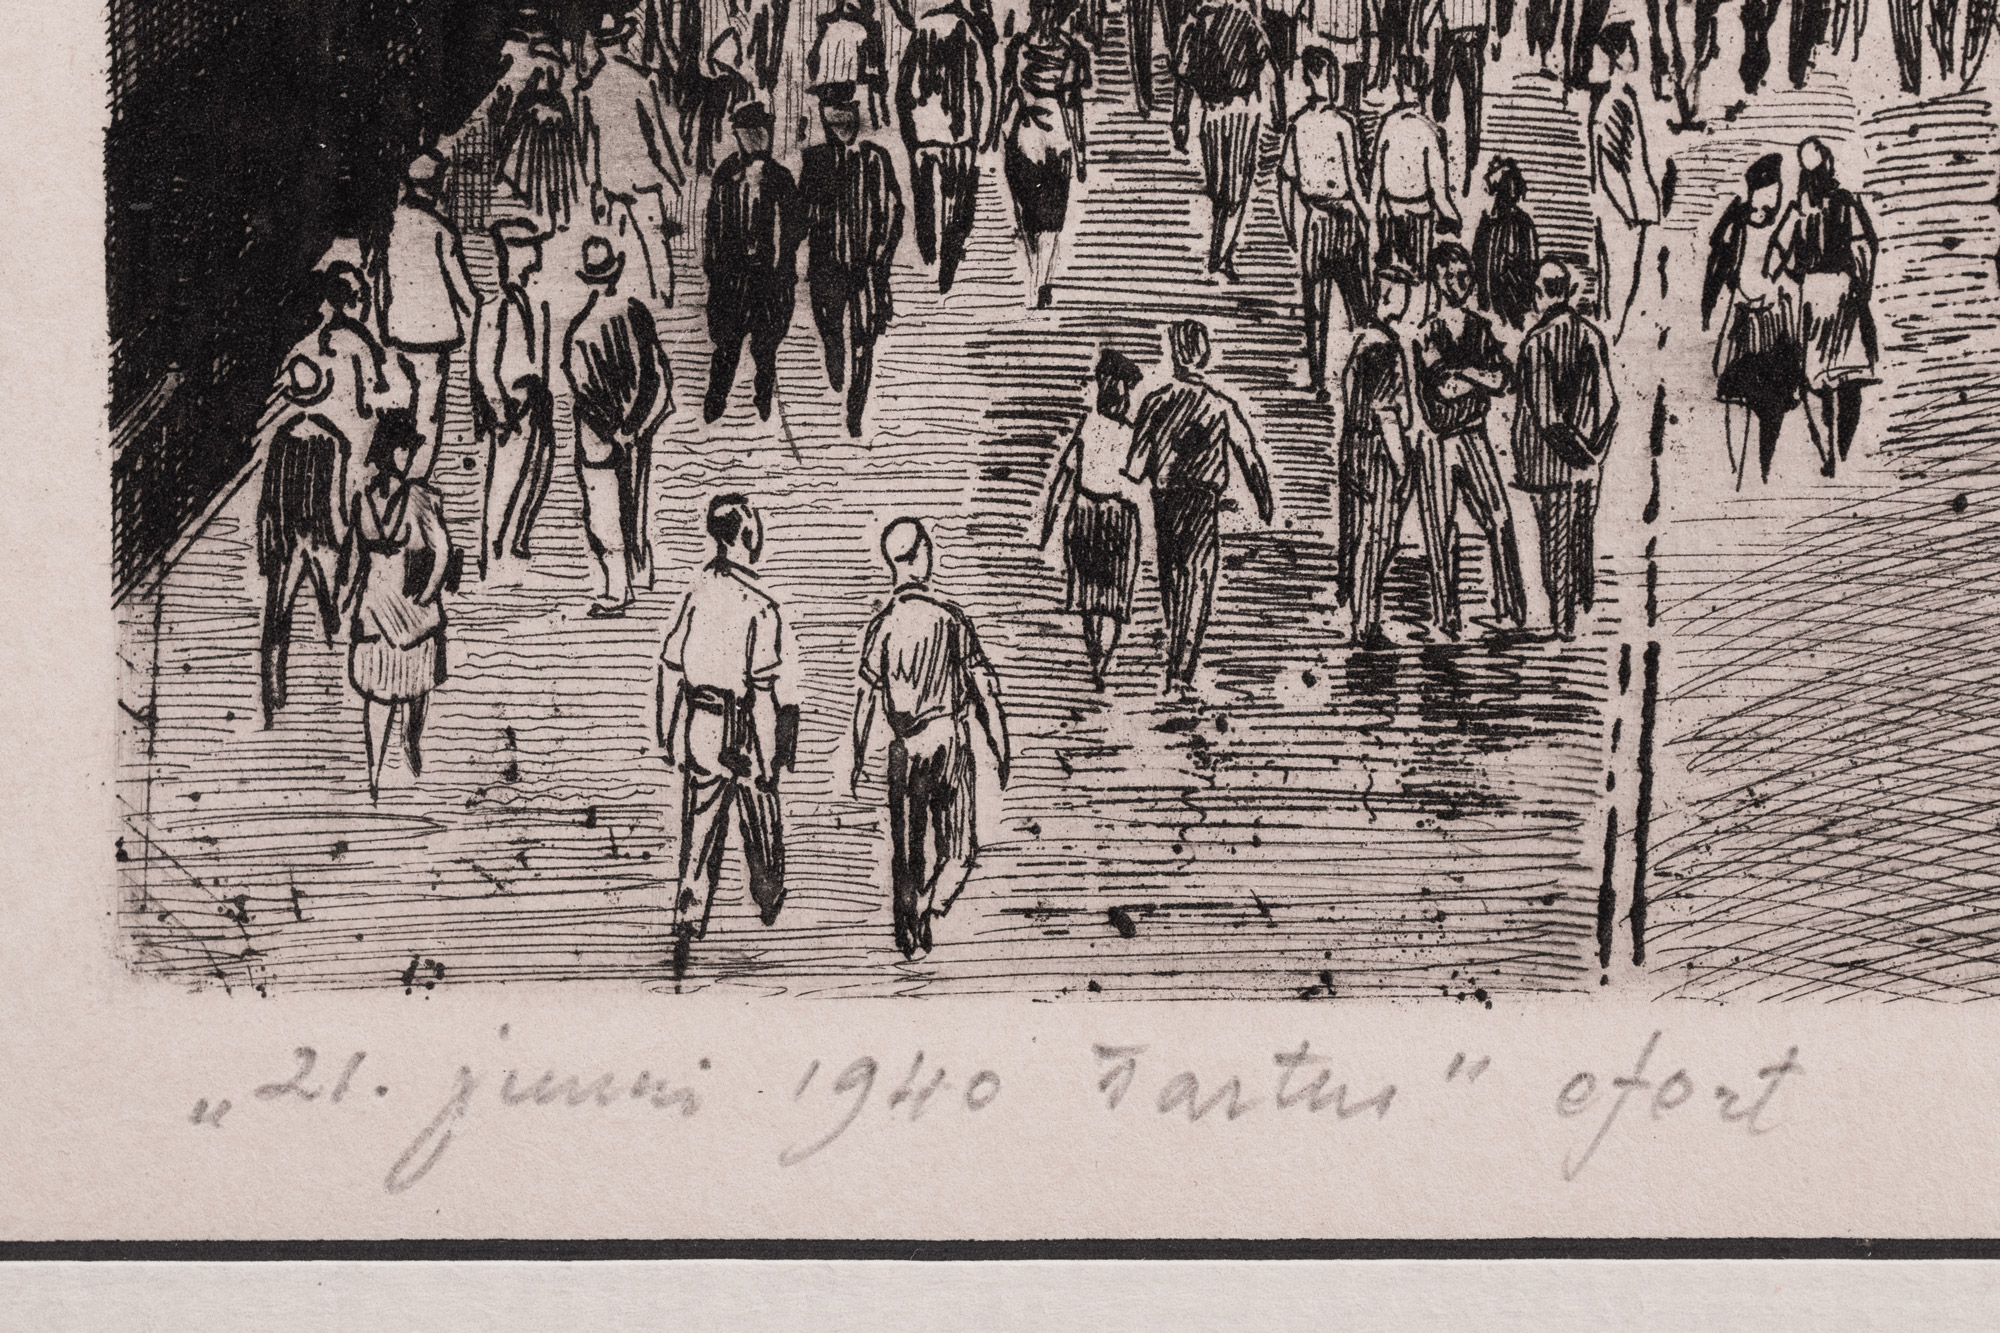 „21. juuni 1940 Tartus" ofort